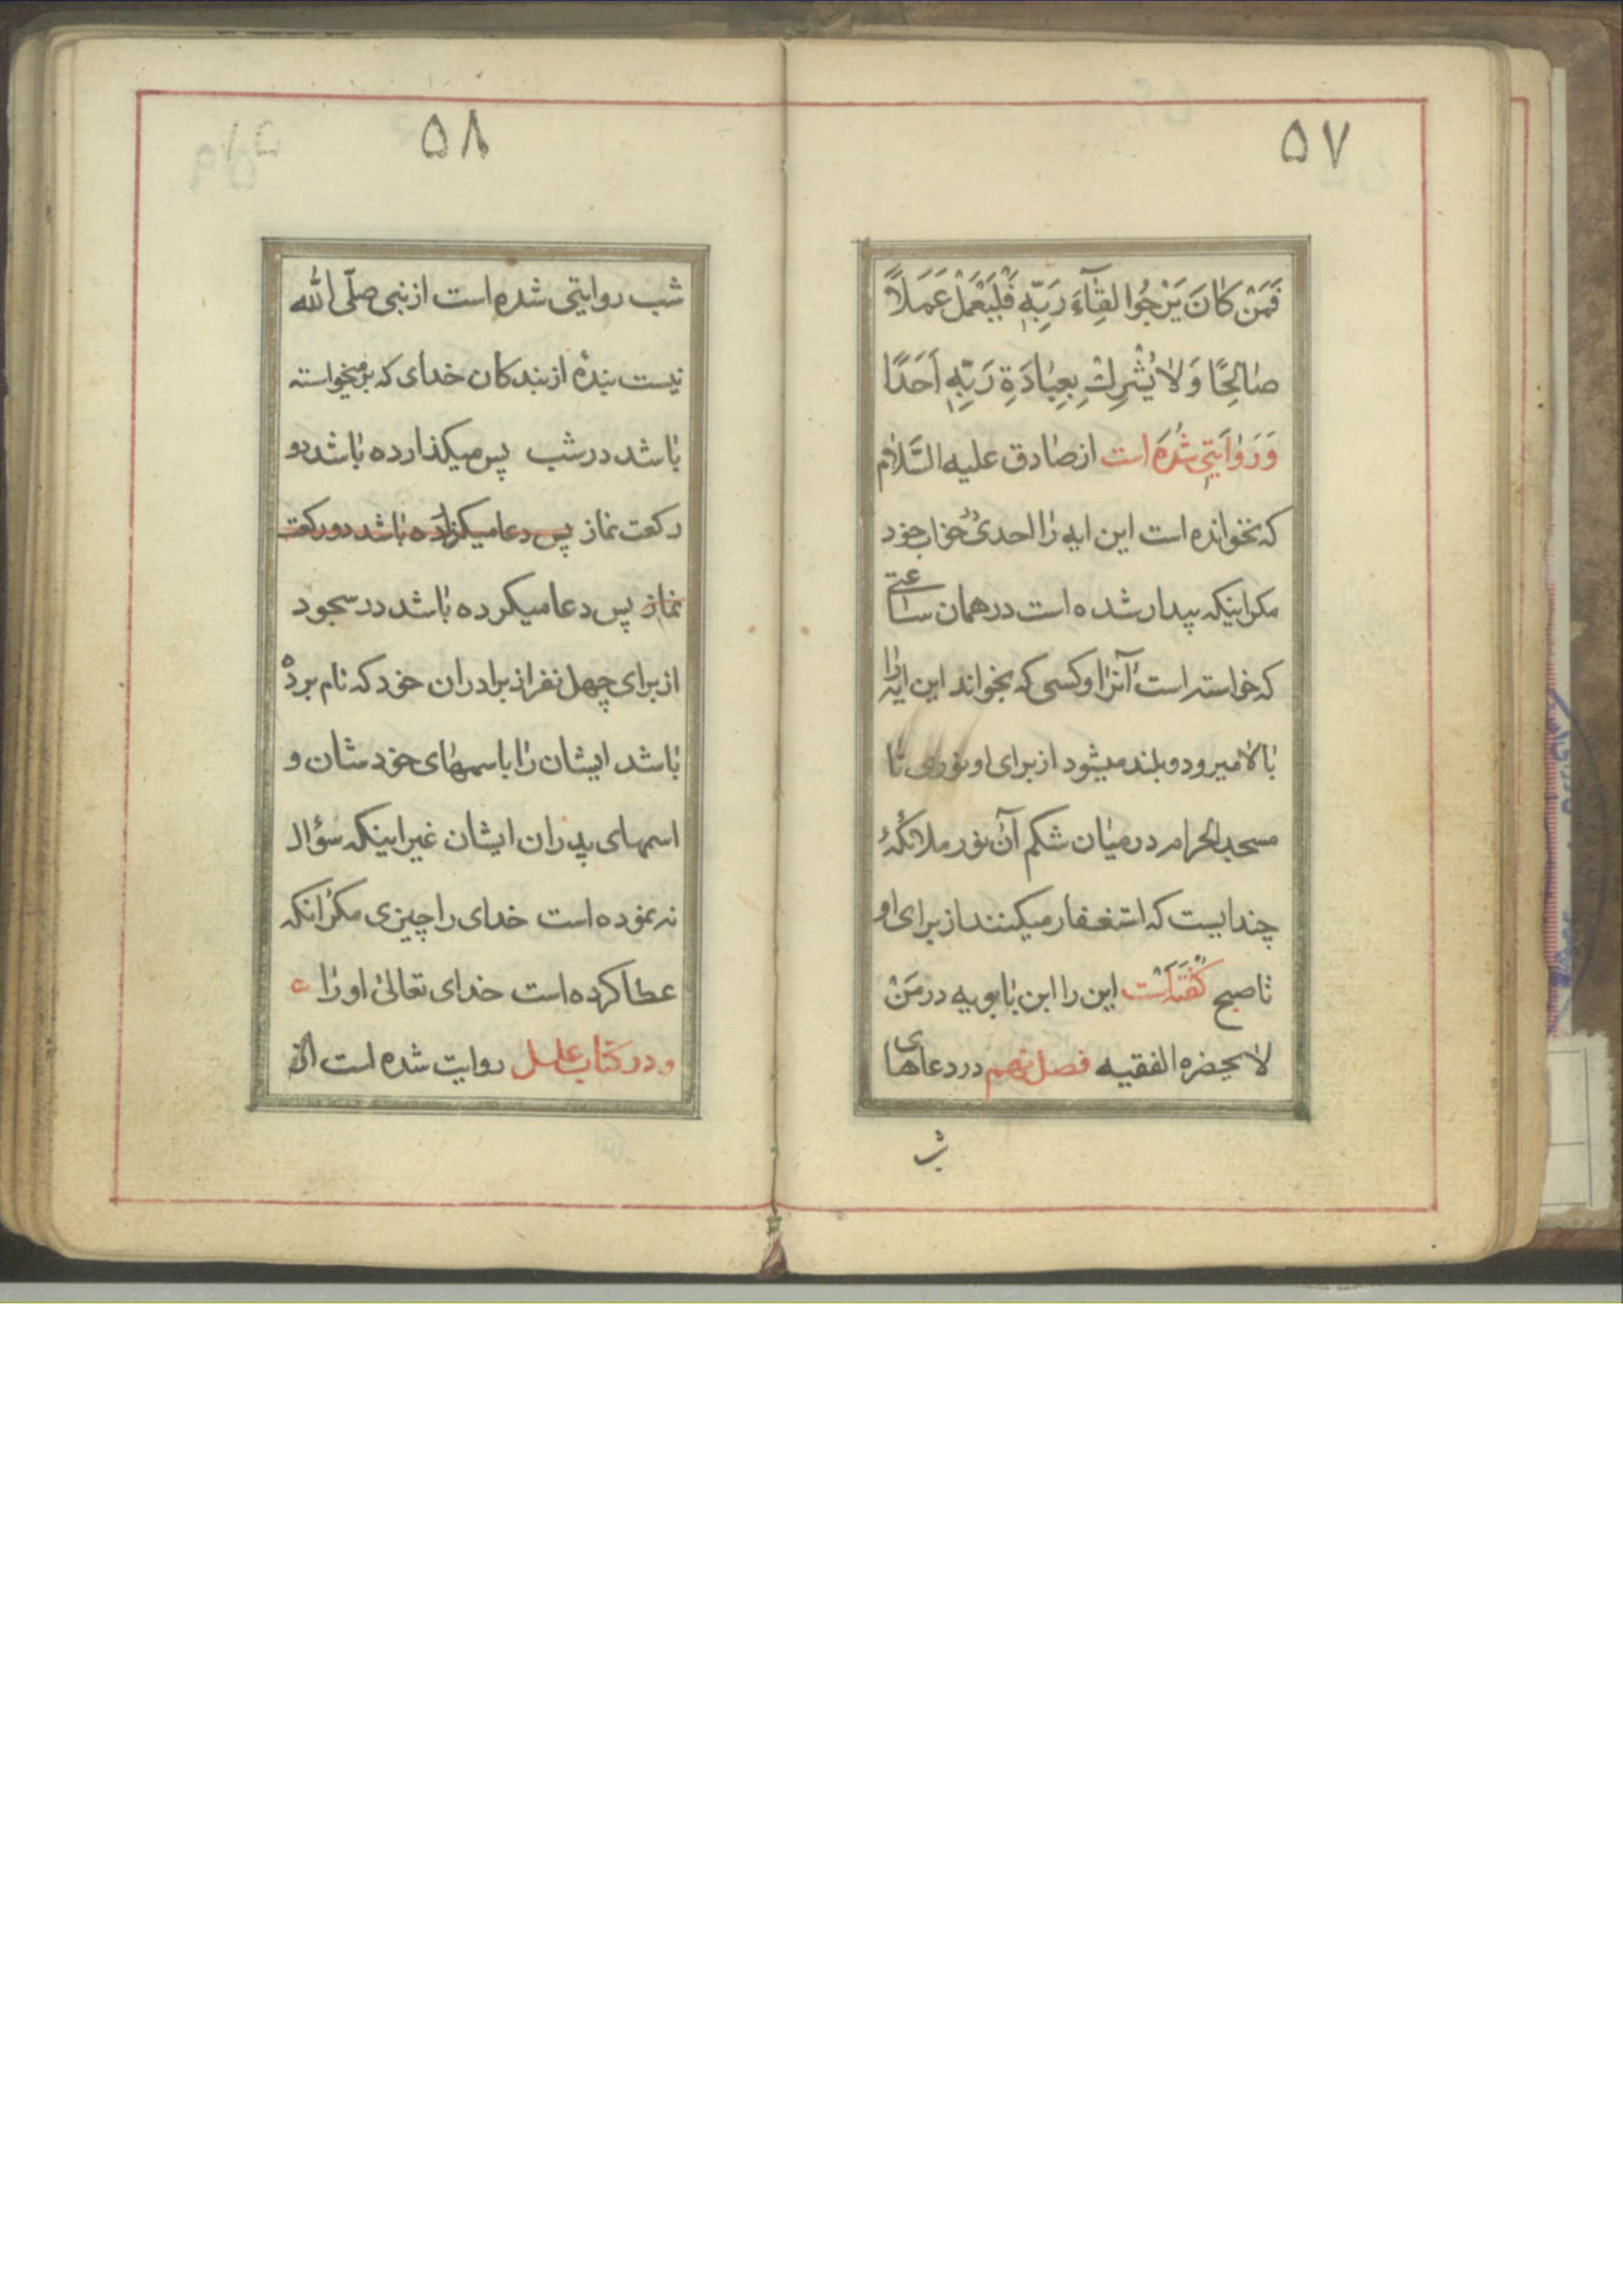 ۵۷
فَمَنْ كٰانَ يَرْجُوا لِقٰٓاءَ رَبِّهٖ فَلْيَعْمَلْ عَمَلاً
صٰالِحًا وَلٰا يُشْرِكْ بِعِبٰادَةِ رَبِّهٖ اَحَدًا
وَرَوٰايَتي شُدَه است از صٰادق عليه السَّلٰام
كه نخوانده است اين ايه رٰا احدى در خواب خود
مكر اينكه بيدار شده است در همان ساعتى
كه خواسته است آنرا و كسى كه بخواند اين ايه رٰا
بٰالا ميرود و بلند ميشود از براى او نورى تٰا
مسجد الحرام در ميٰان شكم آن نور ملائكهٔ
چندايست كه استغفار ميكنند از براى او
تٰا صبح كفته است اين را ابن بٰابويه در مَنْ
لٰا يحضره الفقيه فصل نهم در دعاهاى
ش
۵۸
شب روايتى شده است از نبى صلّى الله
نيست بندهٔ از بندكان خداى كه برميخواسته
بٰاشد در شب پس ميكذارده بٰاشد دو
ركعت نماز پس دعا ميكزارده بٰاشد دو ركعت
نماز پس دعا ميكرده بٰاشد در سجود
از براى چهل نفر از برادران خود كه نام برده
بٰاشد ايشان رٰا باسمهاى خودشان و
اسمهاى پدران ايشان غير اينكه سؤال
نه نموده است خداى را چيزى مكر انكه
عطا كرده است خداى تعالىٰ او رٰا
و در كتاب علل روايت شده است از